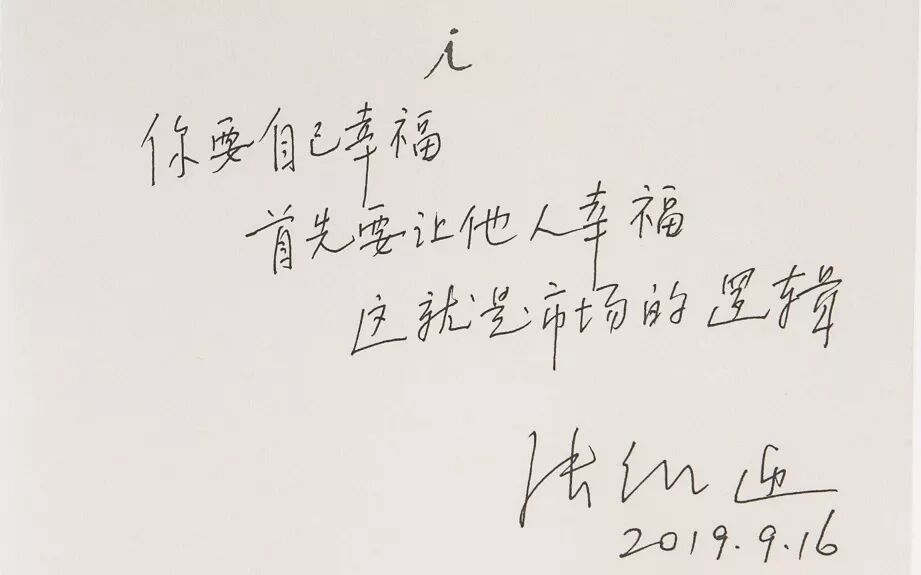 i
你要自己幸福
首先要让他人幸福
这就是市场的逻辑
张维迎
2019.9.16